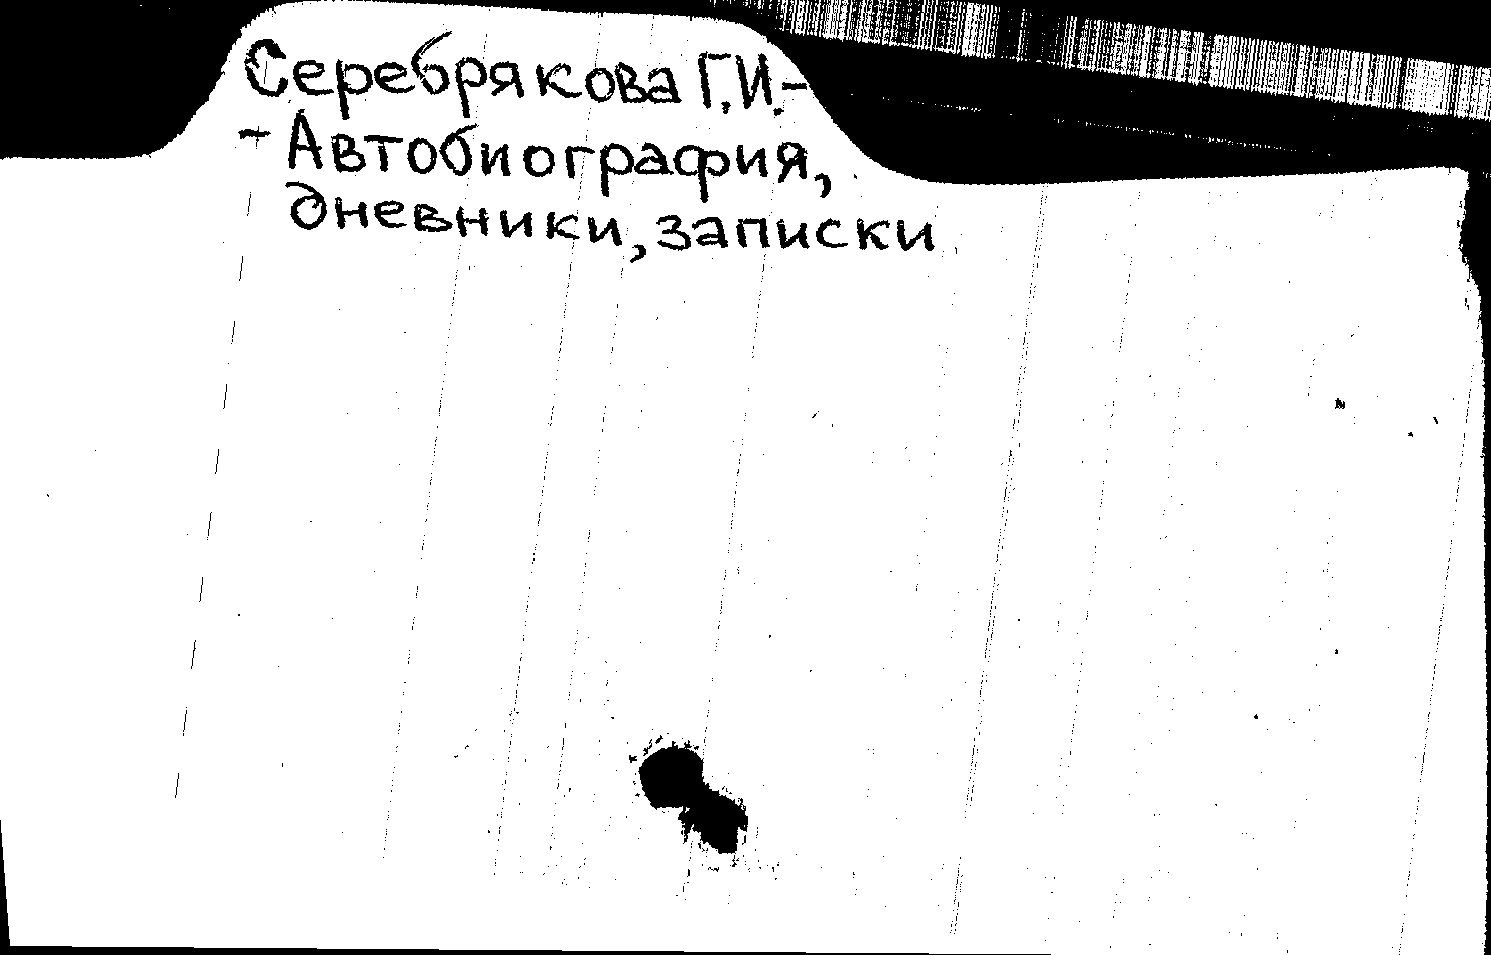 Серебрякова Г.И.-
- Автобиография,
дневники, записки